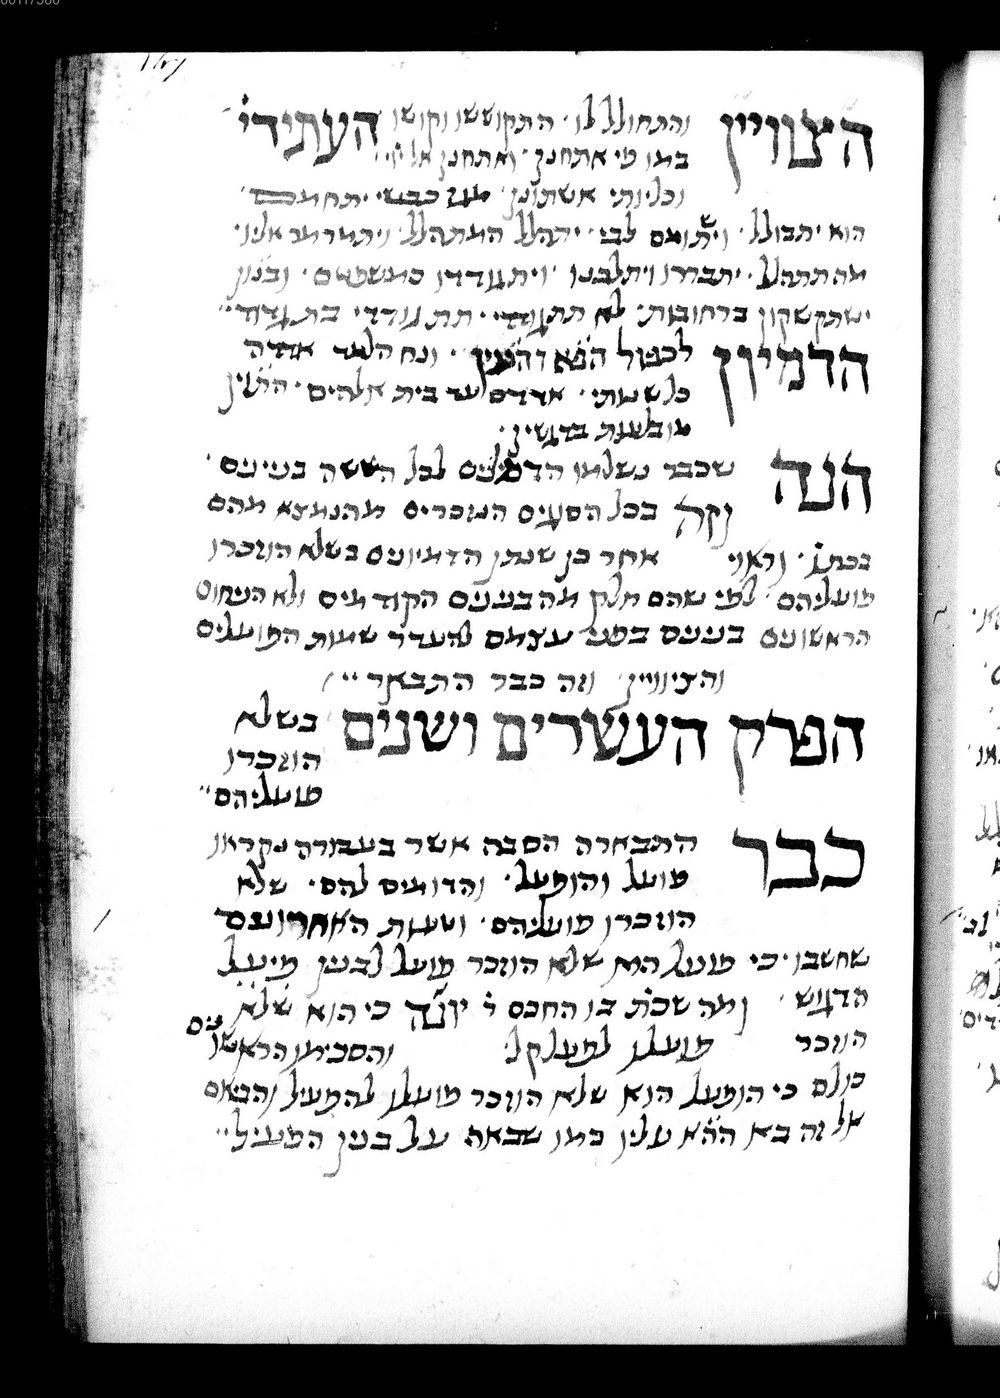 הצוויין והתחולל לו· התקוששו וקושו העתידי
כמו מי אתחנן· ואתחנן אל יי׳·
וכליותי אשתונן·
הוא יתבולל· לבי· יתהלל המתהלל· ויתמרמר אליו·
מה תתהלל· יתבררו ויתלבנו· ויתגודדו כמשפטם·
ישתקשקון ברחובות· לא תתגודדו· תתגודדי בת גדוד·
הדמיון לכפול ונח הלמד אדדה
כל שנותי· אדדם עד בית אלהים·
מובלעת בדגשין·
הנה שכבר נשלמו הדמיונים לכל הששה בניינים·
וזה בכל הפעלים הנזכרים מהנמצא מהם
וראוי אחר כן שנתן הדמיונים בשלא הוזכרו
פועליהם· לפי שהם חלק מה בניינים הקודמים ולא הניחום
הראשונים בניינים בפני עצמם להעדר שמות הפועלים
והציוויין· וזה כבר התבאר··
הפרק העשרים ושנים בשלא
הוזכרו
פועליהם··
כבר התבארה הסבה אשר בעבורה נקראו
פועל והופעל· והדומים להם· שלא
הוזכרו פועליהם· וטעות האחרונים
שחשבו· כי פועל הוא שלא הוזכר פועל לבנין פיעל
הדגוש· ומה שכת׳ בו החכם ר׳ יונה כי הוא שלא
הוזכר פועלו לפעל קל· והסכימו הראשונים
כולם כי הופעל הוא שלא הוזכר פועלו להפעיל והביאם
אל זה בא עליו כמו שבאת על בנין הפעיל··